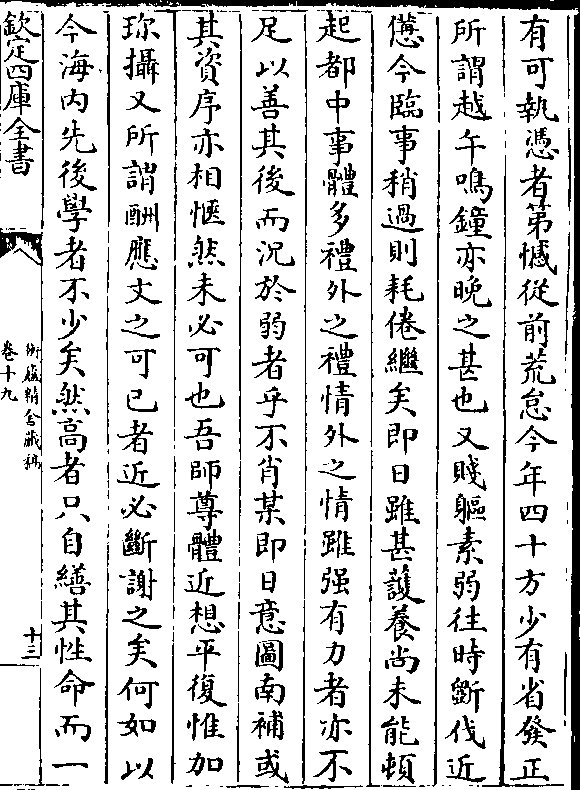 有可執憑者第憾從前荒怠今年四十方少有省發正
所謂越午鳴鐘亦晚之甚也又賤軀素弱往時斵伐近
僽今臨事稍過則耗倦繼矣即日雖甚護養尚未能頓
起都中事體多禮外之禮情外之情雖强有力者亦不
足以善其後而況於弱者乎不肖某即日意圖南補或
其資序亦相愜然未必可也吾師尊體近想平復惟加
珎攝又所謂酬應文之可已者近必斷謝之矣何如以
今海内先後學者不少矣然高者只自繕其性命而一
欽定四庫全書
衡廬精舍藏稿
卷十九
十三